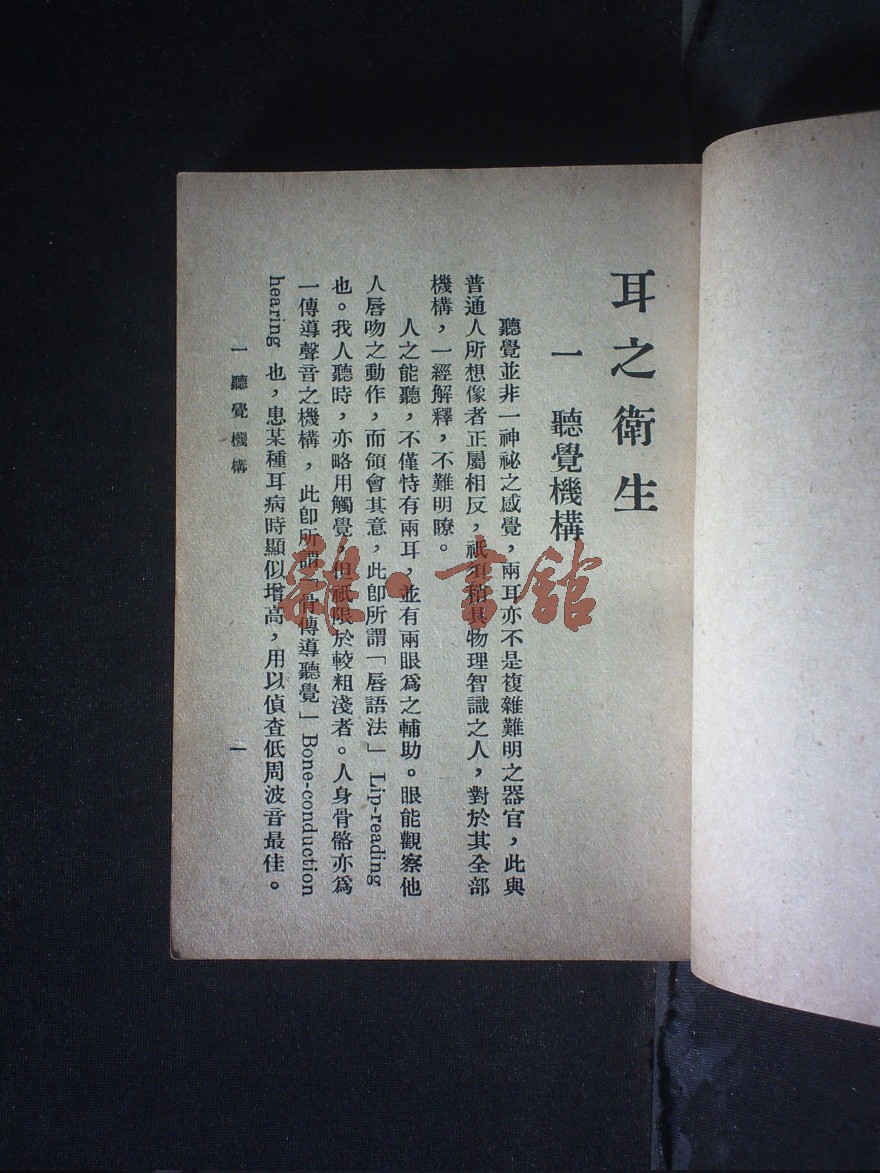 耳之衛生
一　聽覺機構
聽覺並非一神祕之感覺，兩耳亦不是複雜難明之器官，此與
普通人所想像者正屬相反，祇須稍具物理智識之人，對於其全部
機構，一經解釋，不難明瞭。
人之能聽，不僅恃有兩耳，並有兩眼爲之輔助。眼能觀察他
人唇吻之動作，而領會其意，此卽所謂「唇語法」Lip-reading
也。我人聽時，亦略用觸覺，但祇限於較粗淺者。人身骨骼亦爲
一傳導聲音之機構，此卽所謂「骨傳導聽覺」Bone-conduction
hearing 也，患某種耳病時顯似增高，用以偵查低周波音最佳。
一 聽覺機構
一
雜·書館